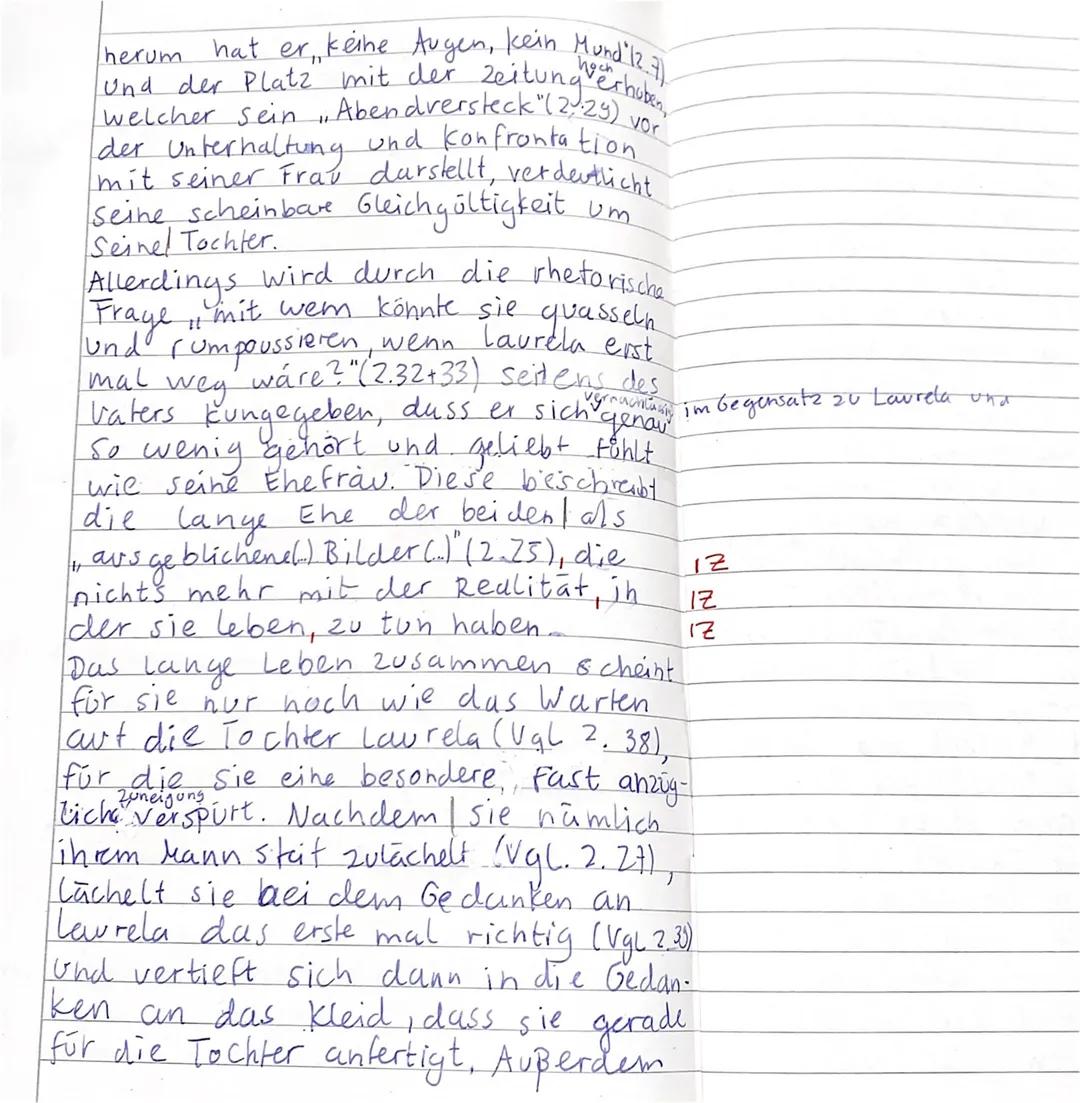 herum hat er „keine Augen, kein Mund" (Z.7)
und der Platz mit der Zeitung hoch erhoben,
welcher sein „Abendversteck" (Z.29) vor
der Unterhaltung und Konfrontation
mit seiner Frau darstellt, verdeutlicht
seine scheinbare Gleichgültigkeit um
seine Tochter.
Allerdings wird durch die rhetorische
Frage „mit wem könnte sie quasseln
und rumpoussieren, wenn Laurela erst
mal weg wäre?" (Z.32+33) seitens des
Vaters kungegeben, dass er sich vernachlässigt im Gegensatz zu Laurela und genau
so wenig gehört und geliebt fühlt
wie seine Ehefrau. Diese beschreibt
die lange Ehe der beiden als
„ausgeblichene(..) Bilder(..)" (Z.25), die
nichts mehr mit der Realität, in
der sie leben, zu tun haben.
IZ
IZ
IZ
Das lange Leben zusammen scheint
für sie nur noch wie das Warten
auf die Tochter Laurela (Vgl Z. 38),
für die sie eine besondere, fast anzüg-
liche Zuneigung verspürt. Nachdem sie nämlich
ihrem Mann steif zulächelt (Vgl. Z. 27),
lächelt sie bei dem Gedanken an
Laurela das erste mal richtig (Vgl Z.30)
und vertieft sich dann in die Gedan-
ken an das Kleid, dass sie gerade
für die Tochter anfertigt. Außerdem